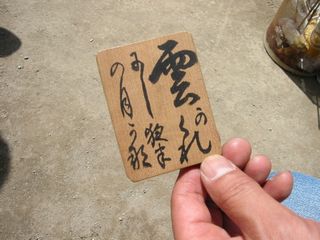 雲かくれ
にし夜半
の月かな